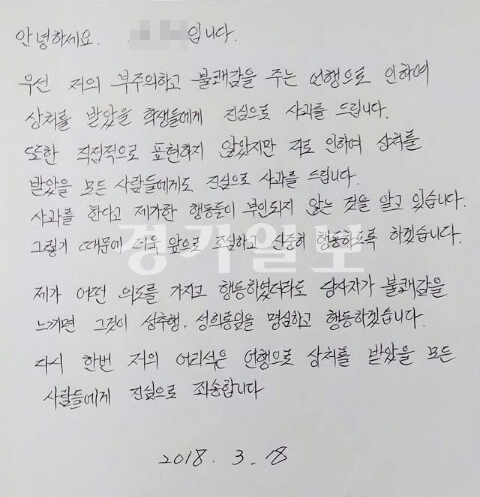 안녕하세요. 입니다.
우선 저의 부주의하고 불쾌감을 주는 언행으로 인하여
상처를 받았을 학생들에게 진심으로 사과를 드립니다.
또한 직접적으로 표현하지 않았지만 저로 인하여 상처를
받았을 모든 사람들에게도 진심으로 사과를 드립니다.
사과를 한다고 제가한 행동들이 부인되지 않는 것을 알고 있습니다.
그렇기 때문에 더욱 앞으로 조심하고 신중히 행동하도록 하겠습니다.
경기일보
제가 어떤 의도를 가지고 행동하였더라도 당사자가 불쾌감을
느끼면 그것이 성추행, 성희롱임을 명심하고 행동하겠습니다.
다시 한번 저의 어리석은 언행으로 상처를 받았을 모든
사람들에게 진심으로 죄송합니다
2018. 3. 18